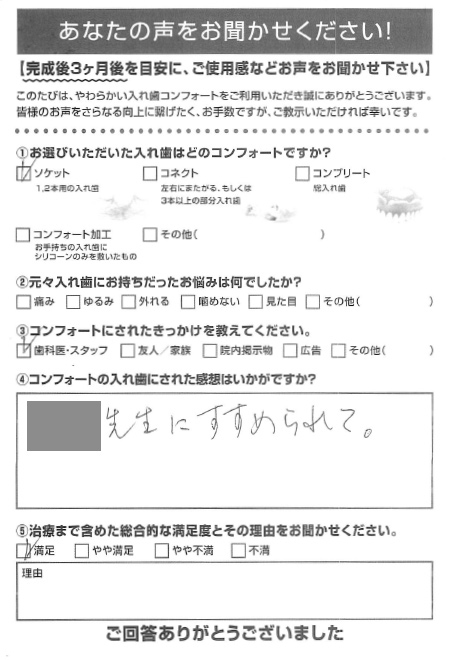 あなたの声をお聞かせください!
【完成後3ヶ月後を目安に、ご使用感などお声をお聞かせ下さい】
このたびは、やわらかい入れ歯コンフォートをご利用いただき誠にありがとうございます。
皆様のお声をさらなる向上に繋げたく、お手数ですが、ご教示いただければ幸いです。
①お選びいただいた入れ歯はどのコンフォートですか?
☑ソケット □コネクト □コンプリート
1,2本用の入れ歯 左右にまたがる、もしくは 総入れ歯
3本以上の部分入れ歯
□コンフォート加工 □その他( )
お手持ちの入れ歯に
シリコーンのみを敷いたもの
②元々入れ歯にお持ちだったお悩みは何でしたか?
□痛み □ゆるみ □外れる □噛めない □見た目 □その他( )
③コンフォートにされたきっかけを教えてください。
☑歯科医・スタッフ □友人/家族 □院内掲示物 □広告 □その他( )
④コンフォートの入れ歯にされた感想はいかがですか?
先生にすすめられて。
⑤治療まで含めた総合的な満足度とその理由をお聞かせください。
☑満足 □やや満足 □やや不満 □不満
理由
ご回答ありがとうございました